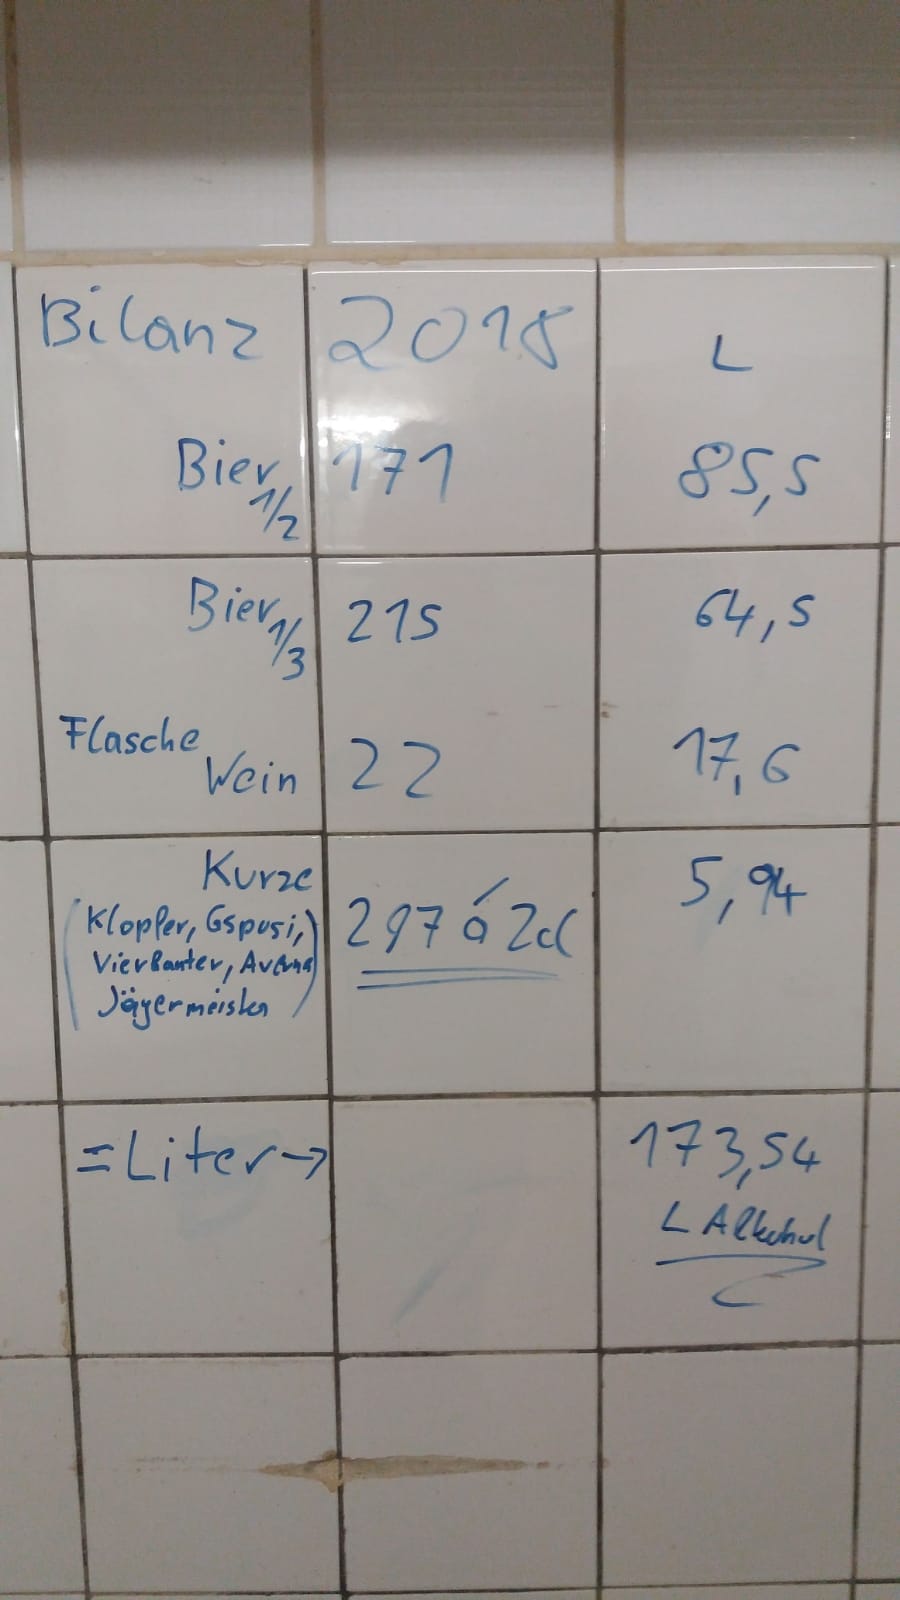 Bilanz 2018 L
Bier 1/2 171 85,5
Bier 1/3 215 64,5
Flasche
Wein 22 17,6
Kurze 5,94
(Klopfer, Gspusi, 297 á 2cl
Vierkanter, Averna
Jägermeister)
=Liter→ 173,54
L Alkohol